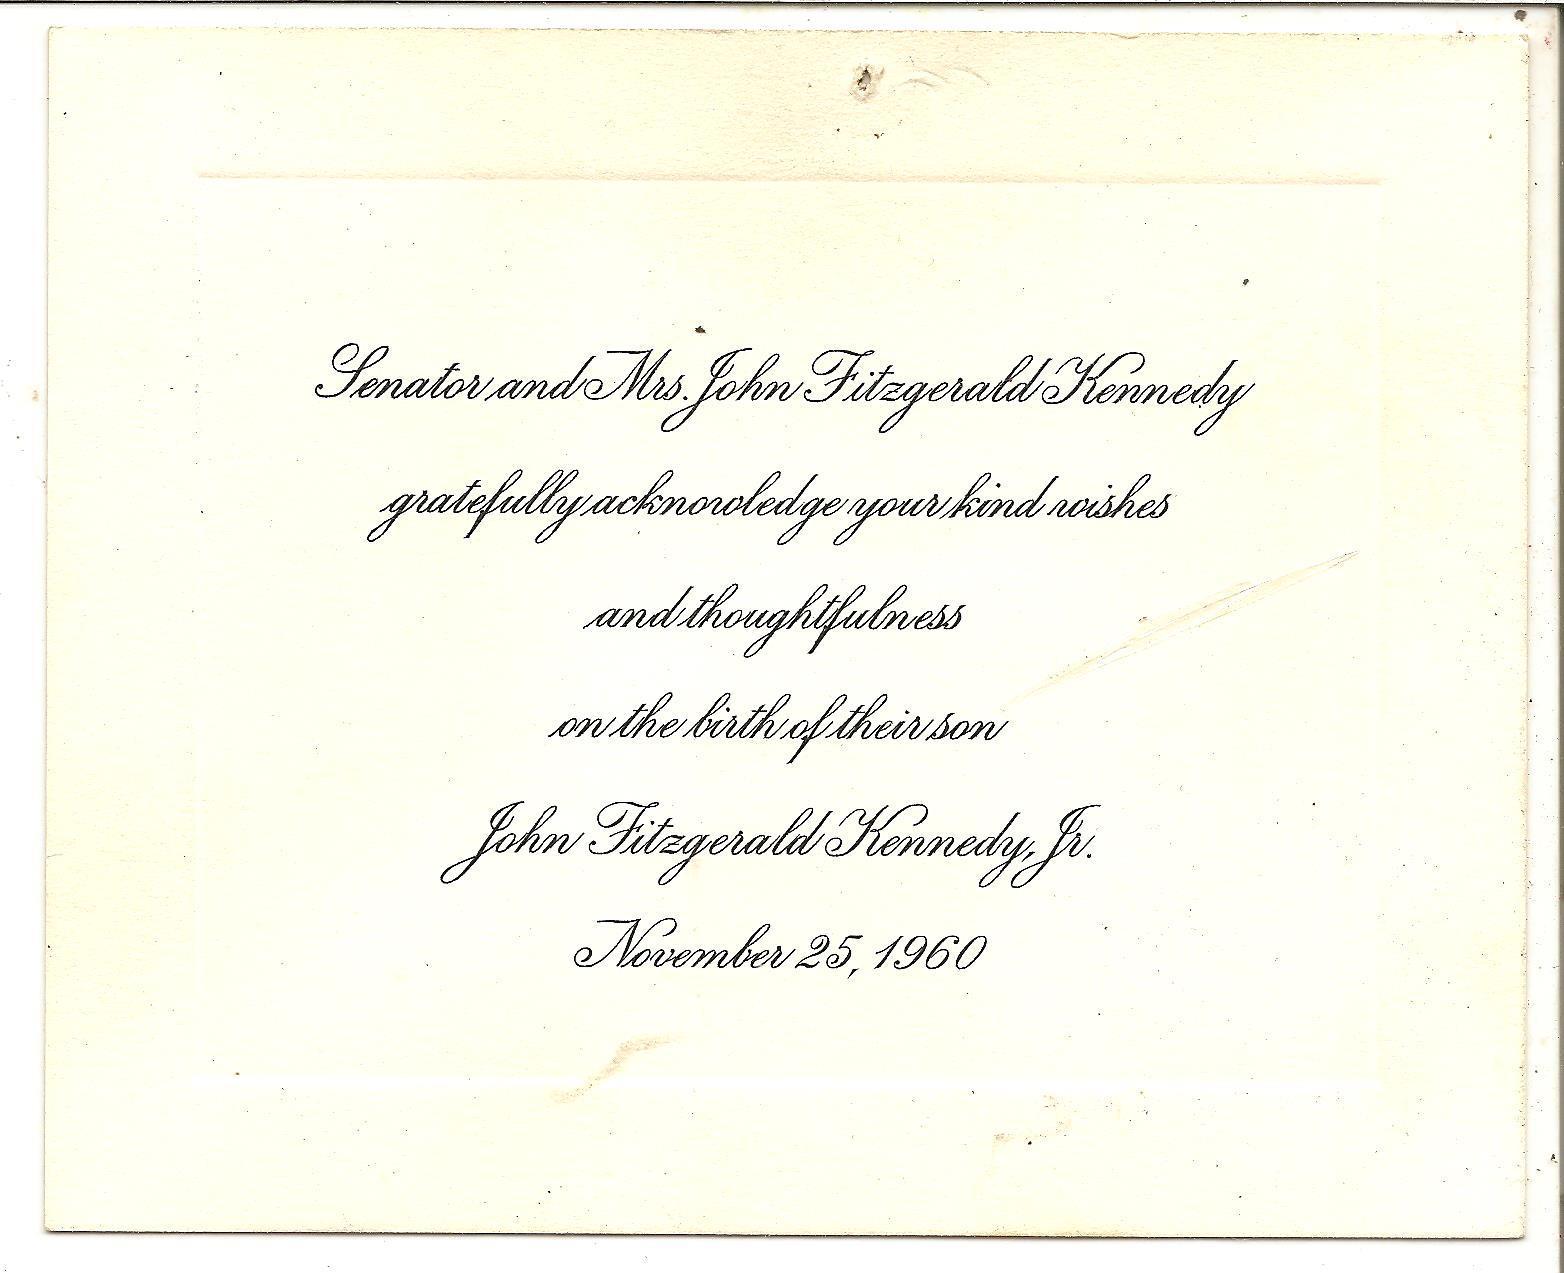 Senator and Mrs. John Fitzgerald Kennedy
gratefully acknowledge your kind wishes
and thoughtfulness
on the birth of their son
John Fitzgerald Kennedy, Jr.
November 25, 1960